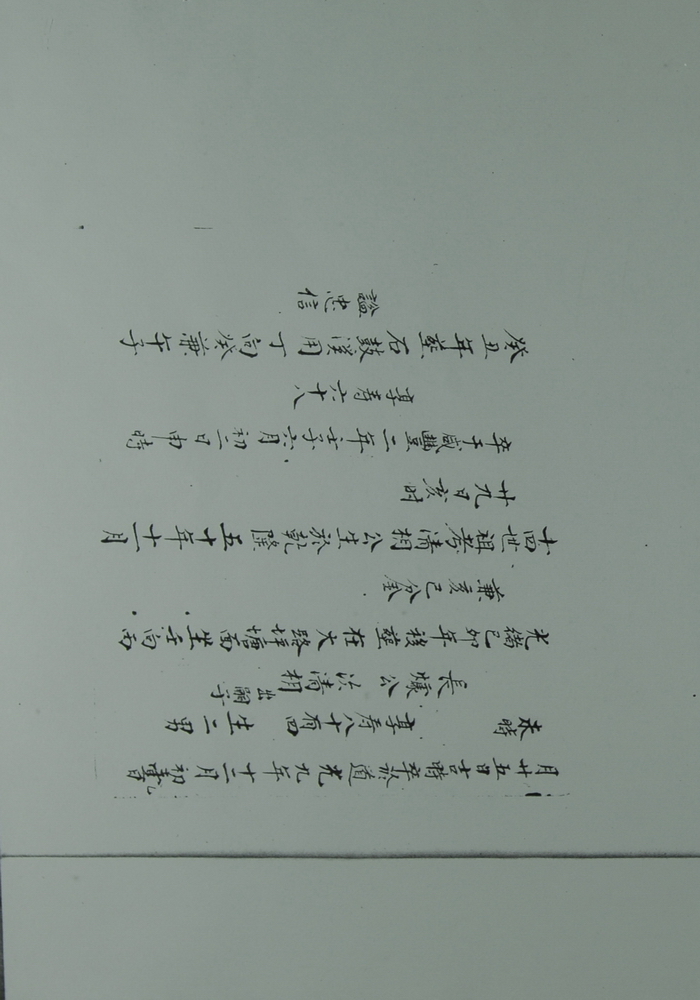 月廿五日吉時卒於道光九年十二月初九日
未時 尊寿八十有四 生二男
長爔公 次清相 出嗣于
光緒己卯年移葬在大路坪塘面坐向西
兼亥己分金
十四世祖考清相公生於乾隆五十年十一月
廿九日亥时
卒于咸豐二年壬子六月初二日申時
尊寿六十八
癸丑年葬石鼓溪用丁向癸兼午子
諡忠信